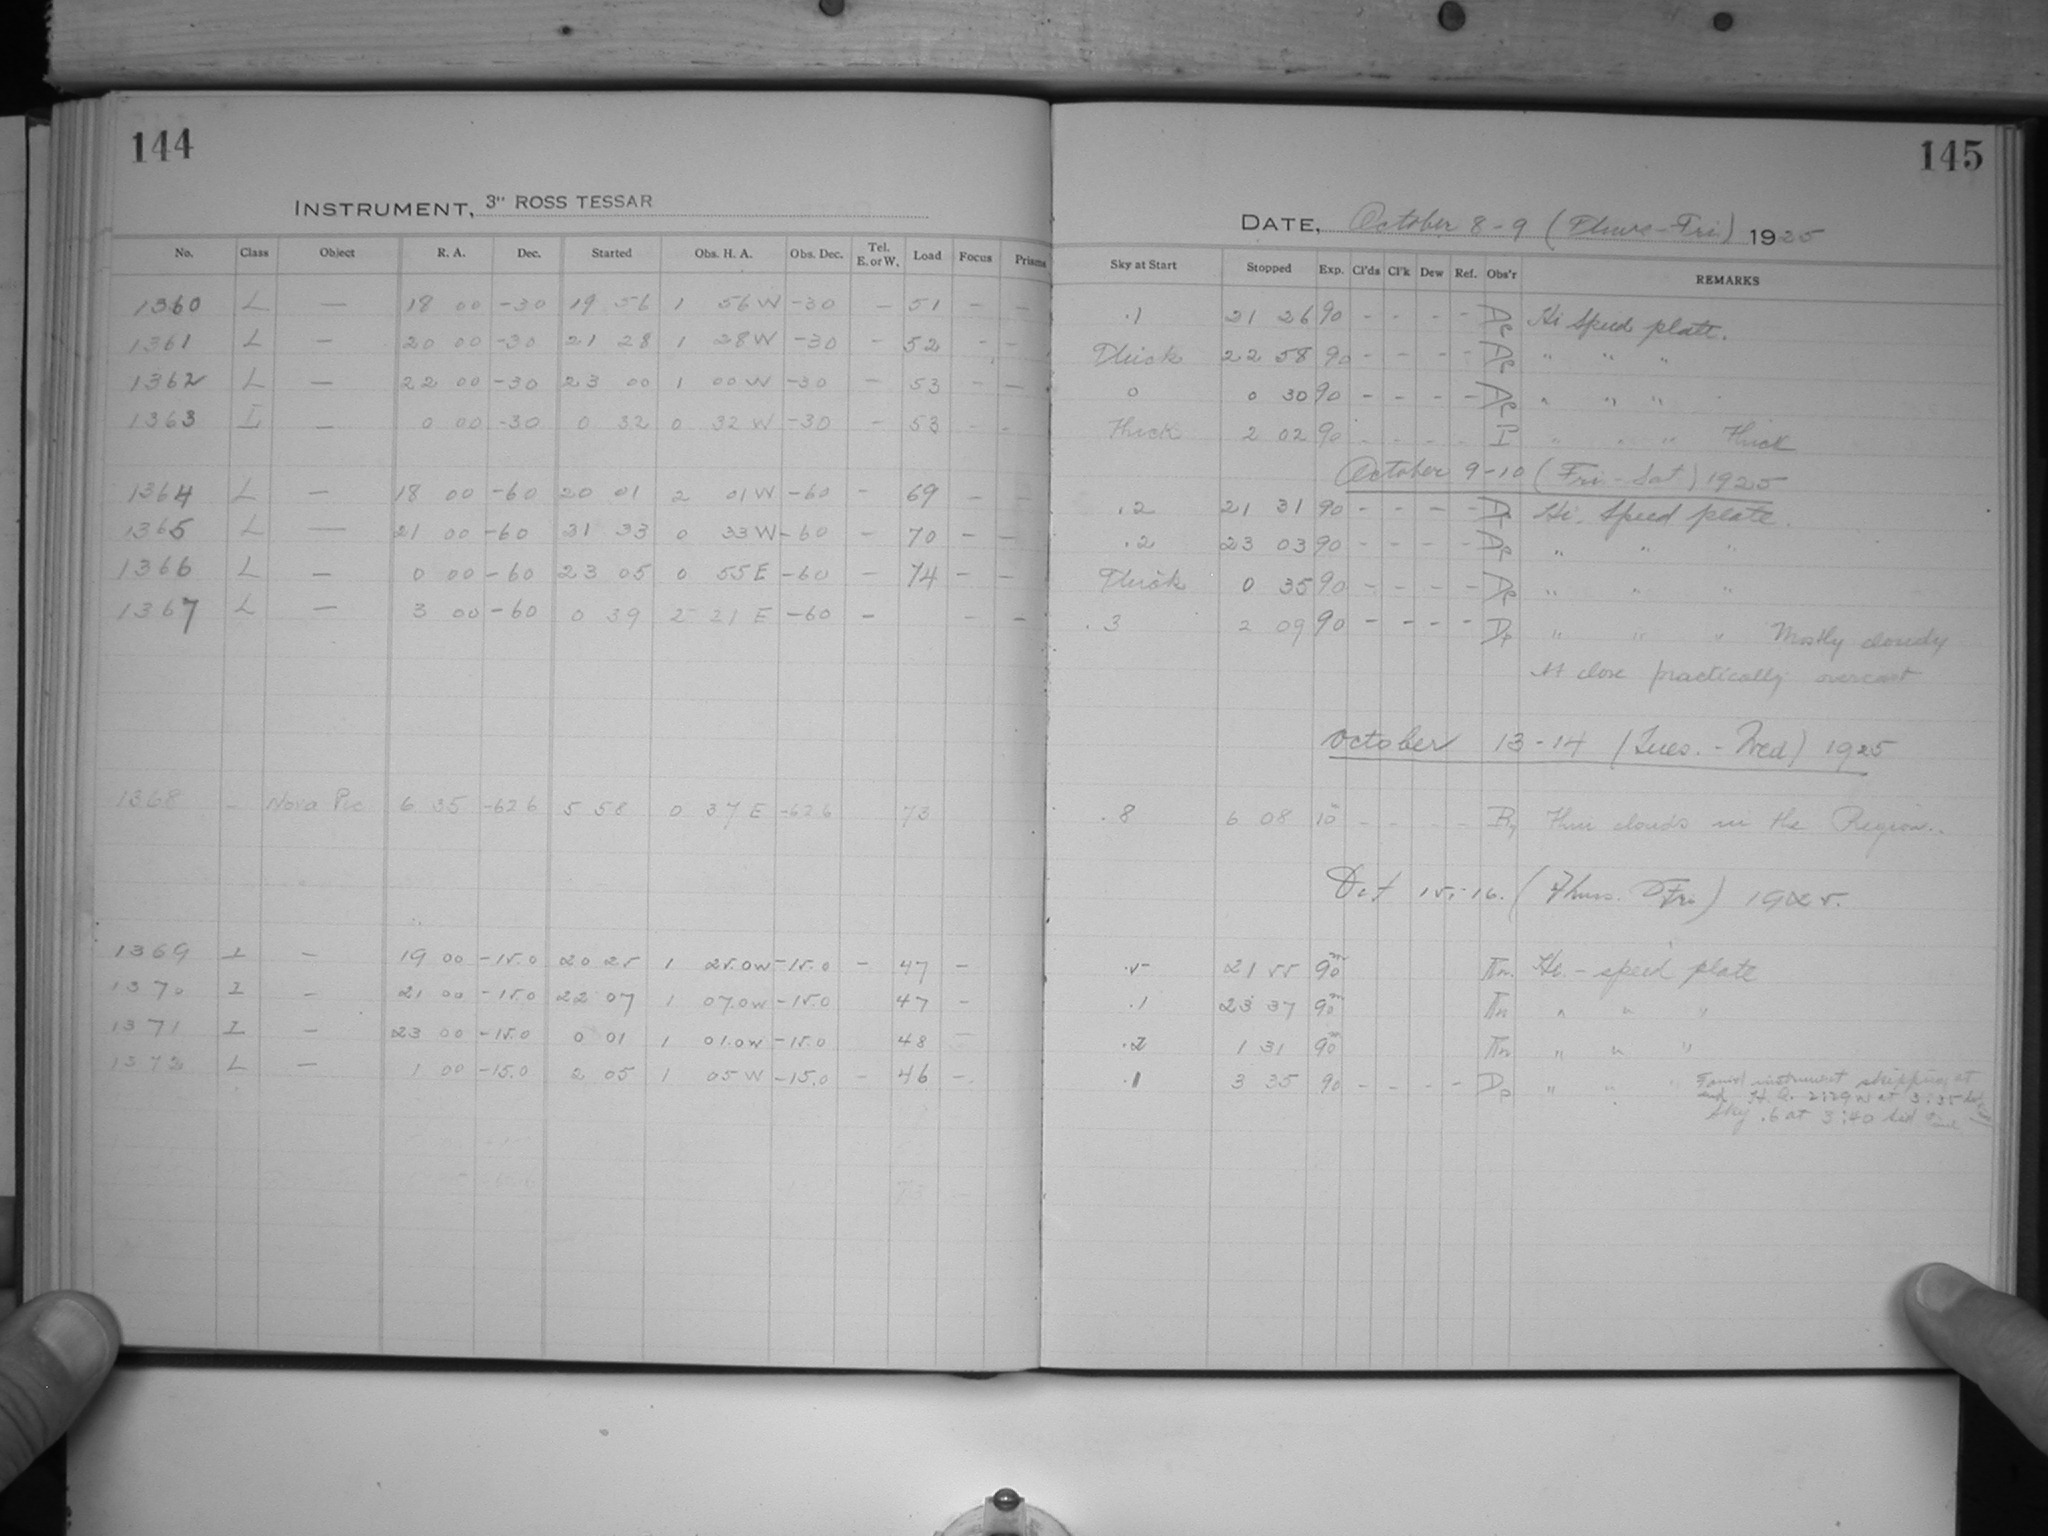 144
INSTRUMENT, 3" ROSS TESSAR
No. Class Object R. A. Dec. Started Obs. H. A. Obs. Dec. Tel. E. or W. Load Focus Prisms
1360 L — 18 00 -30 19 56 1 56 W -30 — 51 — —
1361 L — 20 00 -30 21 28 1 28 W -30 — 52 — —
1362 L — 22 00 -30 23 00 1 00 W -30 — 53 — —
1363 I — 0 00 -30 0 32 0 32 W -30 — 53 — —
1364 L — 18 00 -60 20 01 2 01 W -60 — 69 — —
1365 L — 21 00 -60 21 33 0 33 W -60 — 70 — —
1366 L — 0 00 -60 23 05 0 55 E -60 — 74 — —
1367 L — 3 00 -60 0 39 2 21 E -60 — — —
1368 – Nova Pic 6 35 -62 6 5 58 0 37 E -62 6 73
1369 I — 19 00 -15.0 20 25 1 25.0 W -15.0 — 47 —
1370 I — 21 00 -15.0 22 07 1 07.0 W -15.0 47 —
1371 I — 23 00 -15.0 0 01 1 01.0 W -15.0 48 —
1372 L — 1 00 -15.0 2 05 1 05 W -15.0 — 46 —
145
DATE, October 8-9 (Thurs-Fri) 1925
Sky at Start Stopped Exp. Cl'ds Cl'k Dew Ref. Obs'r REMARKS
.1 21 26 90 - - - - Hi Speed plate.
Thick 22 58 90 - - - - " " "
0 0 30 90 - - - - " " "
Thick 2 02 90 - - - - I " " " Thick
October 9-10 (Fri-Sat) 1925
.2 21 31 90 - - - - Hi. Speed plate.
.2 23 03 90 - - - - " " "
Thick 0 35 90 - - - - " " "
.3 2 09 90 - - - - " " " Mostly cloudy
At close practically overcast
October 13-14 (Tues.-Wed) 1925
.8 6 08 10 - - - - Thin clouds in the Region.
Oct 15-16. (Thurs. Fri) 1925.
.5 21 55 90m Hi-speed plate
.1 23 37 90m " " "
.2 1 31 90m " " "
.1 3 35 90 - - - - " " " Found instrument skipping at
H.A. 2:29 W at 3:35
Sky .6 at 3:40 Sid Time